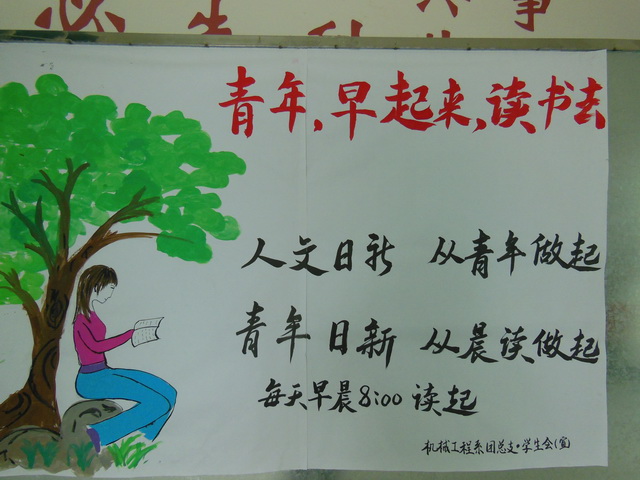 青年,早起来,读书去
人文日新 从青年做起
青年日新 从晨读做起
每天早晨8:00读起
机械工程系团总支·学生会(宣)